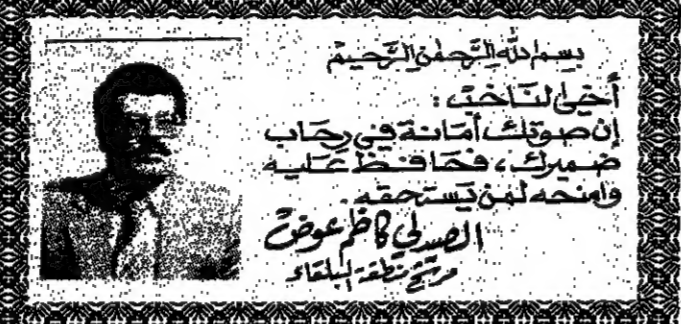 بسم الله الرحمن الرحيم
أخي الناخب :
إن صوتك أمانة في رحاب
ضميرك ، فحافظ عليه
وامنحه لمن يستحقه .
الصيدلي كاظم عوض
مرشح منطقة البلقاء